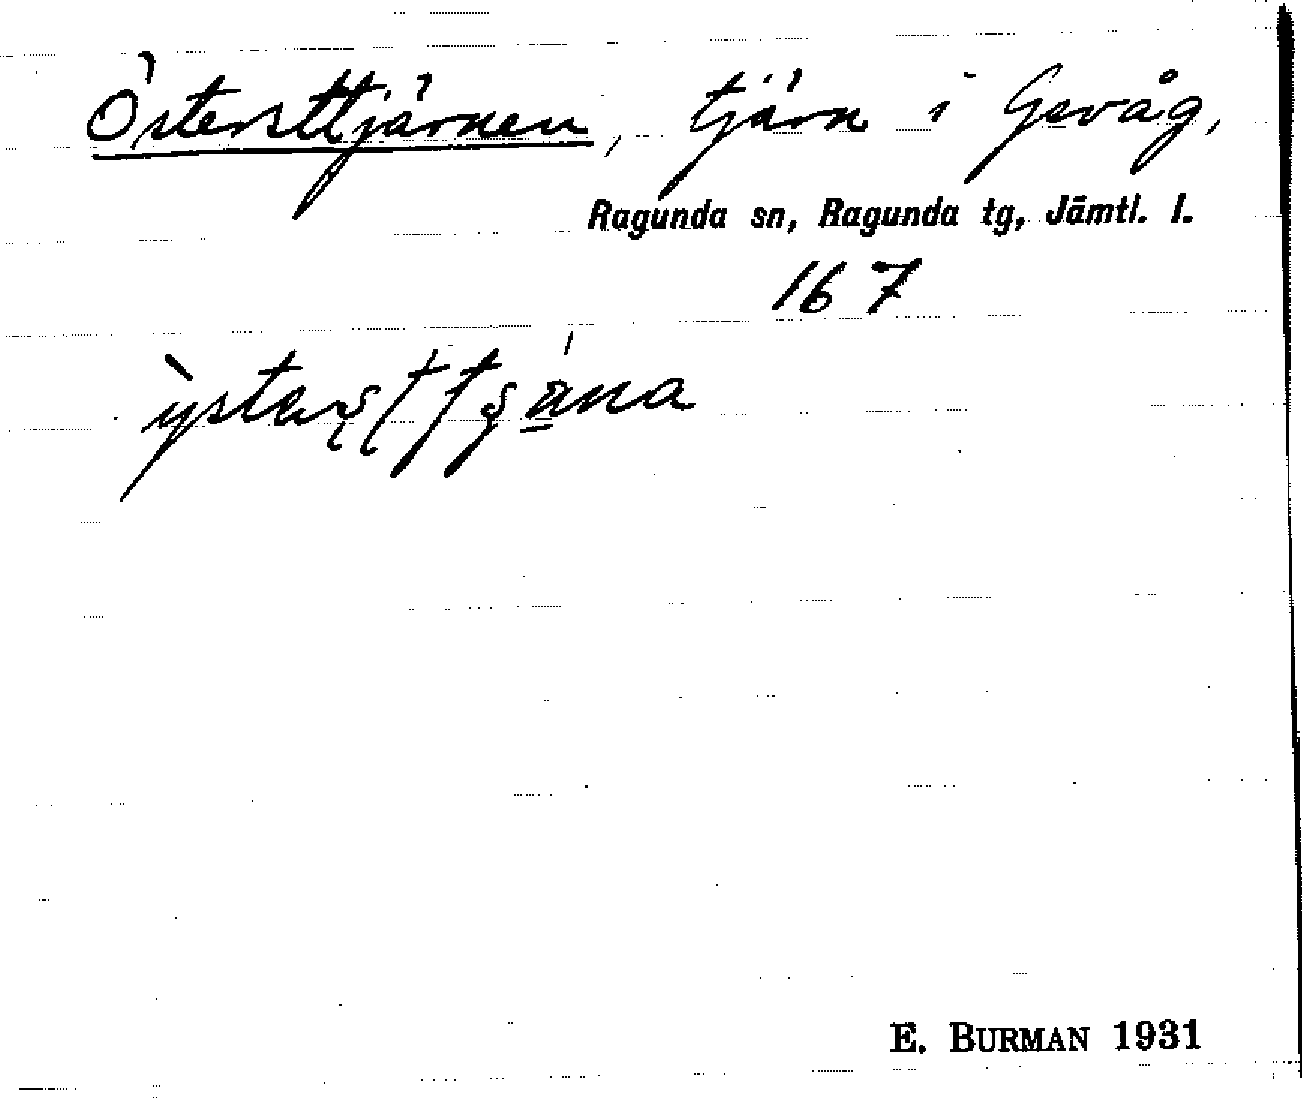 Östersttjärnen, tjärn i Gevåg,
Ragunda sn, Ragunda tg, Jämtl. l.
167
E. BURMAN 1931